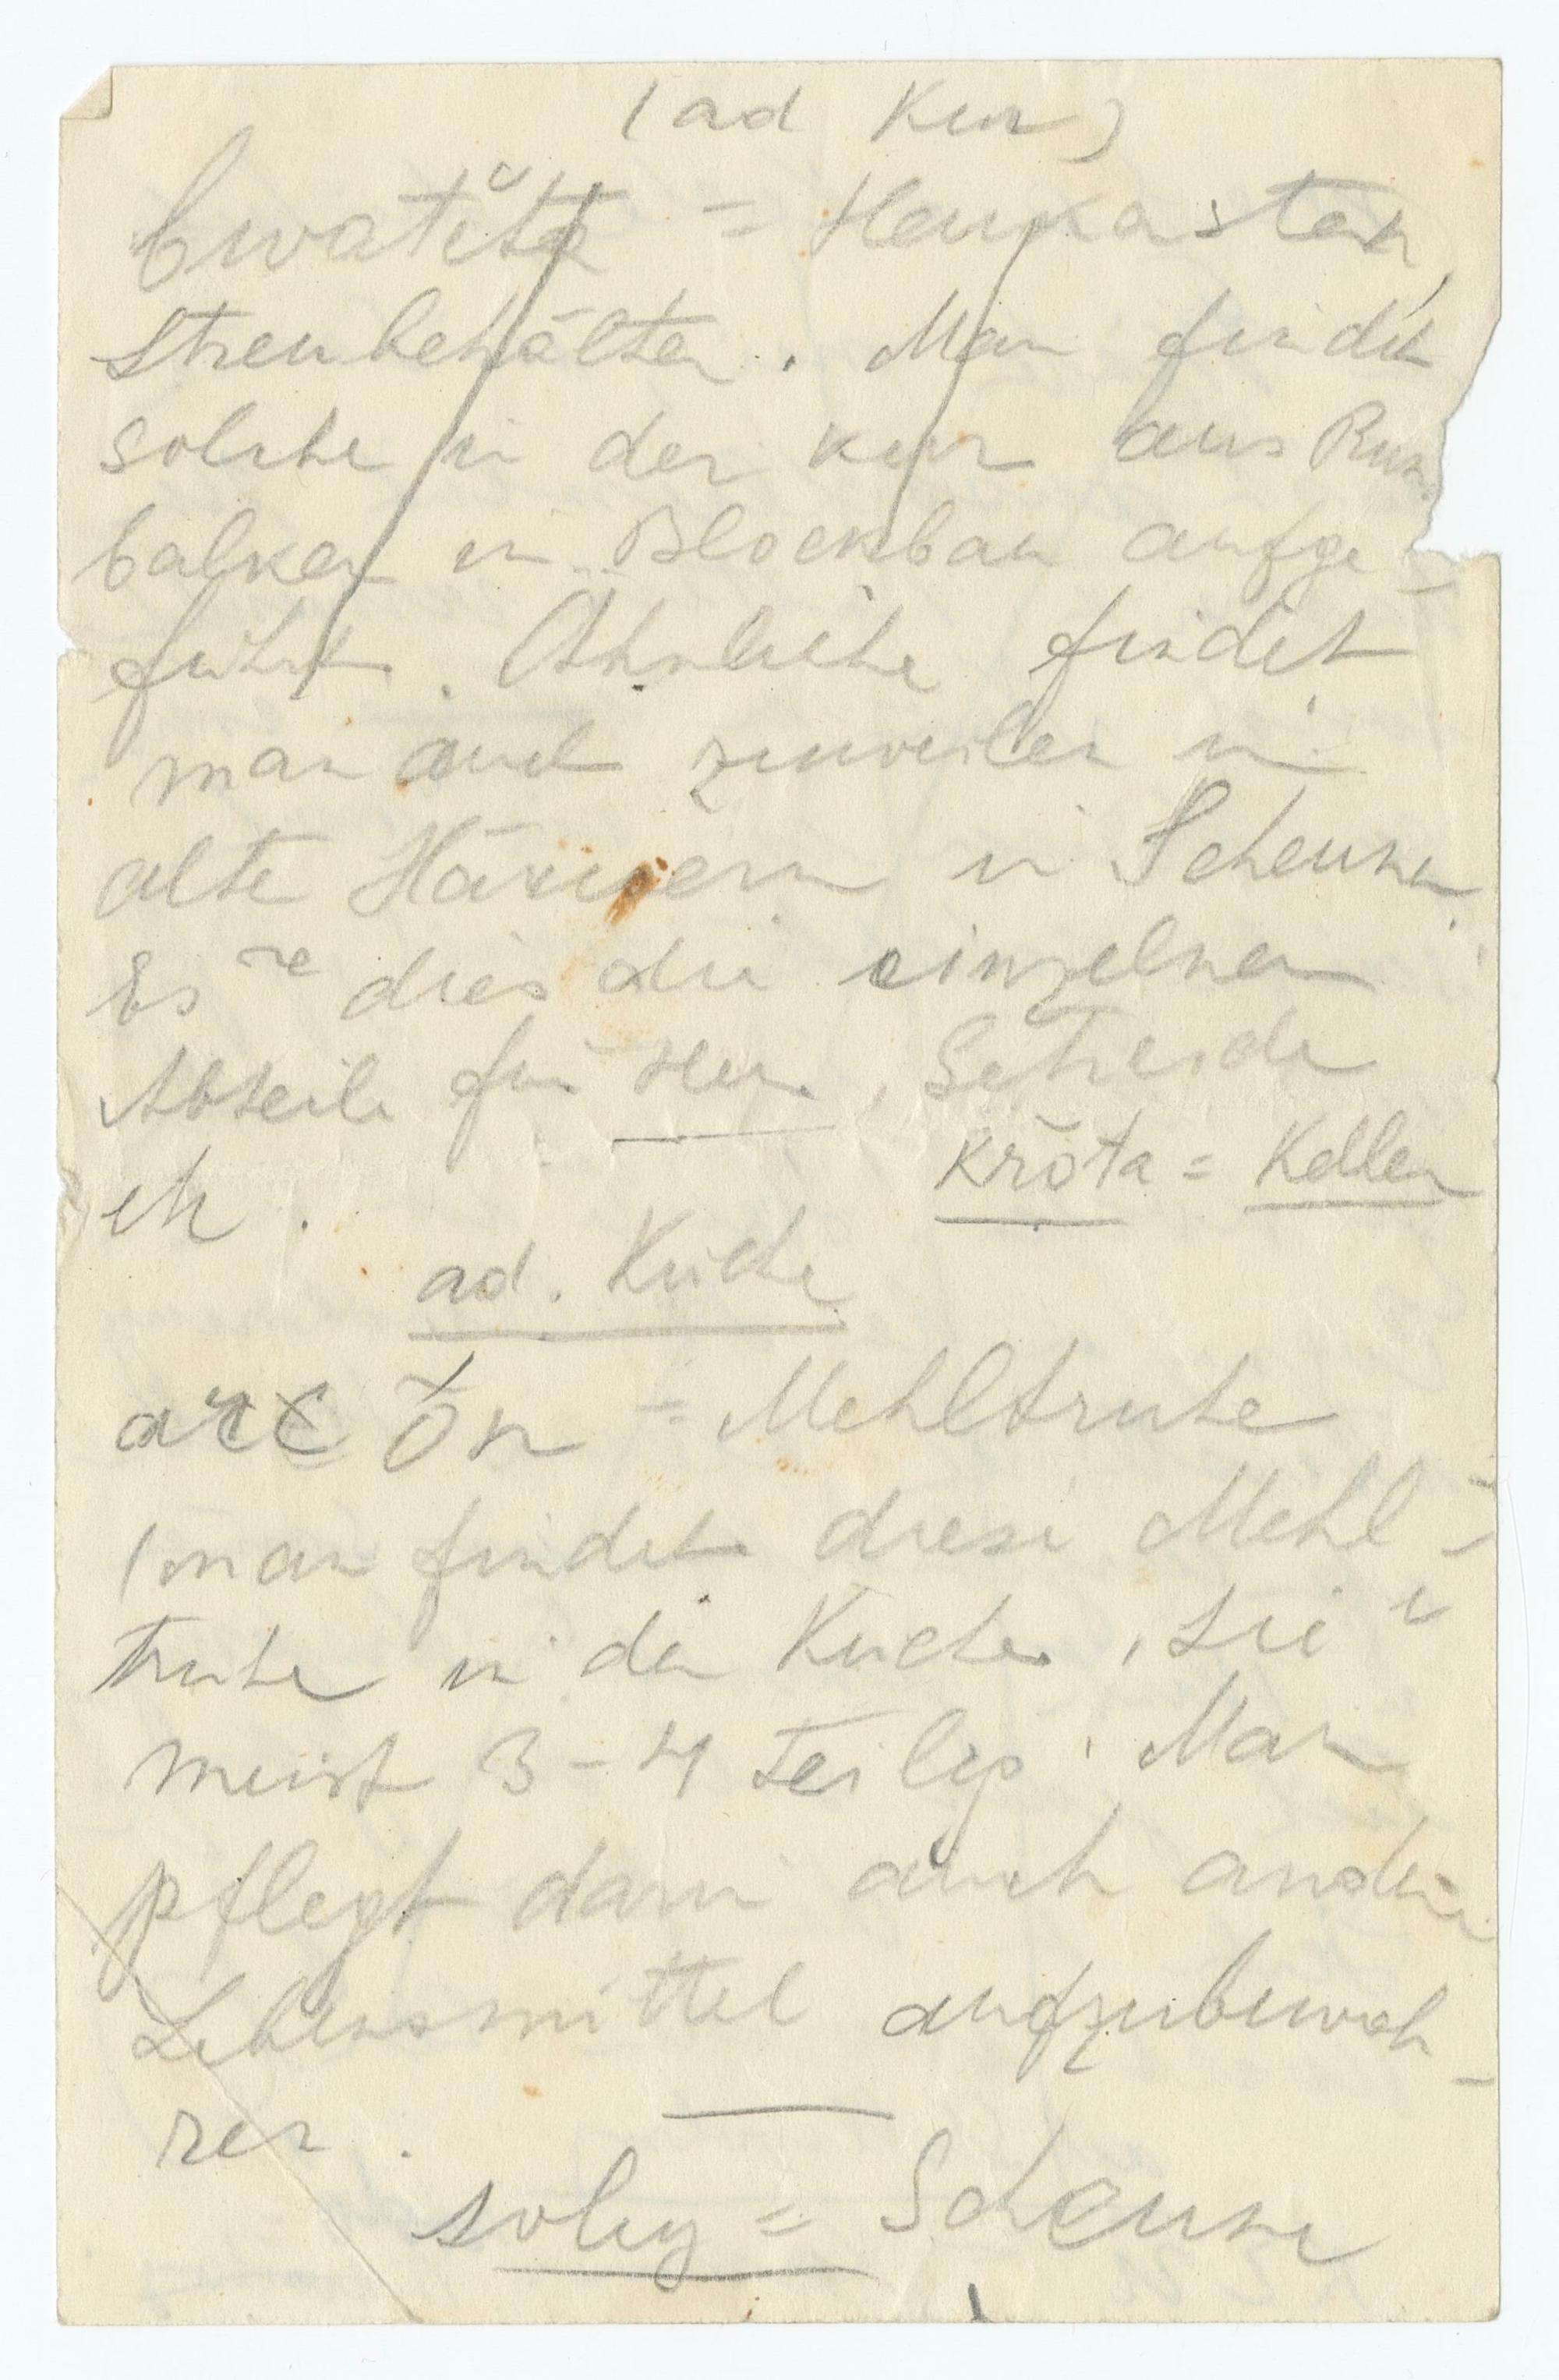 (ad Kur)
= Heukasten,
Streubehälter. Man findet
solche in der Kur aus
balken in Blockbau aufge-
führt. Ähnliche findet
man auch zuweilen in
alte Häusern in Scheunen.
Es dies die einzelnen
Abteile für Heu, Getreide
etc.
krǒta = Keller
ad. Küche
= Mehltruhe
(man findet diese Mehl-
truhe in der Küche, sie
meist 3-4 teilig. Man
pflegt darin auch andere
Lebensmittel aufzubewah-
ren.
= Scheune